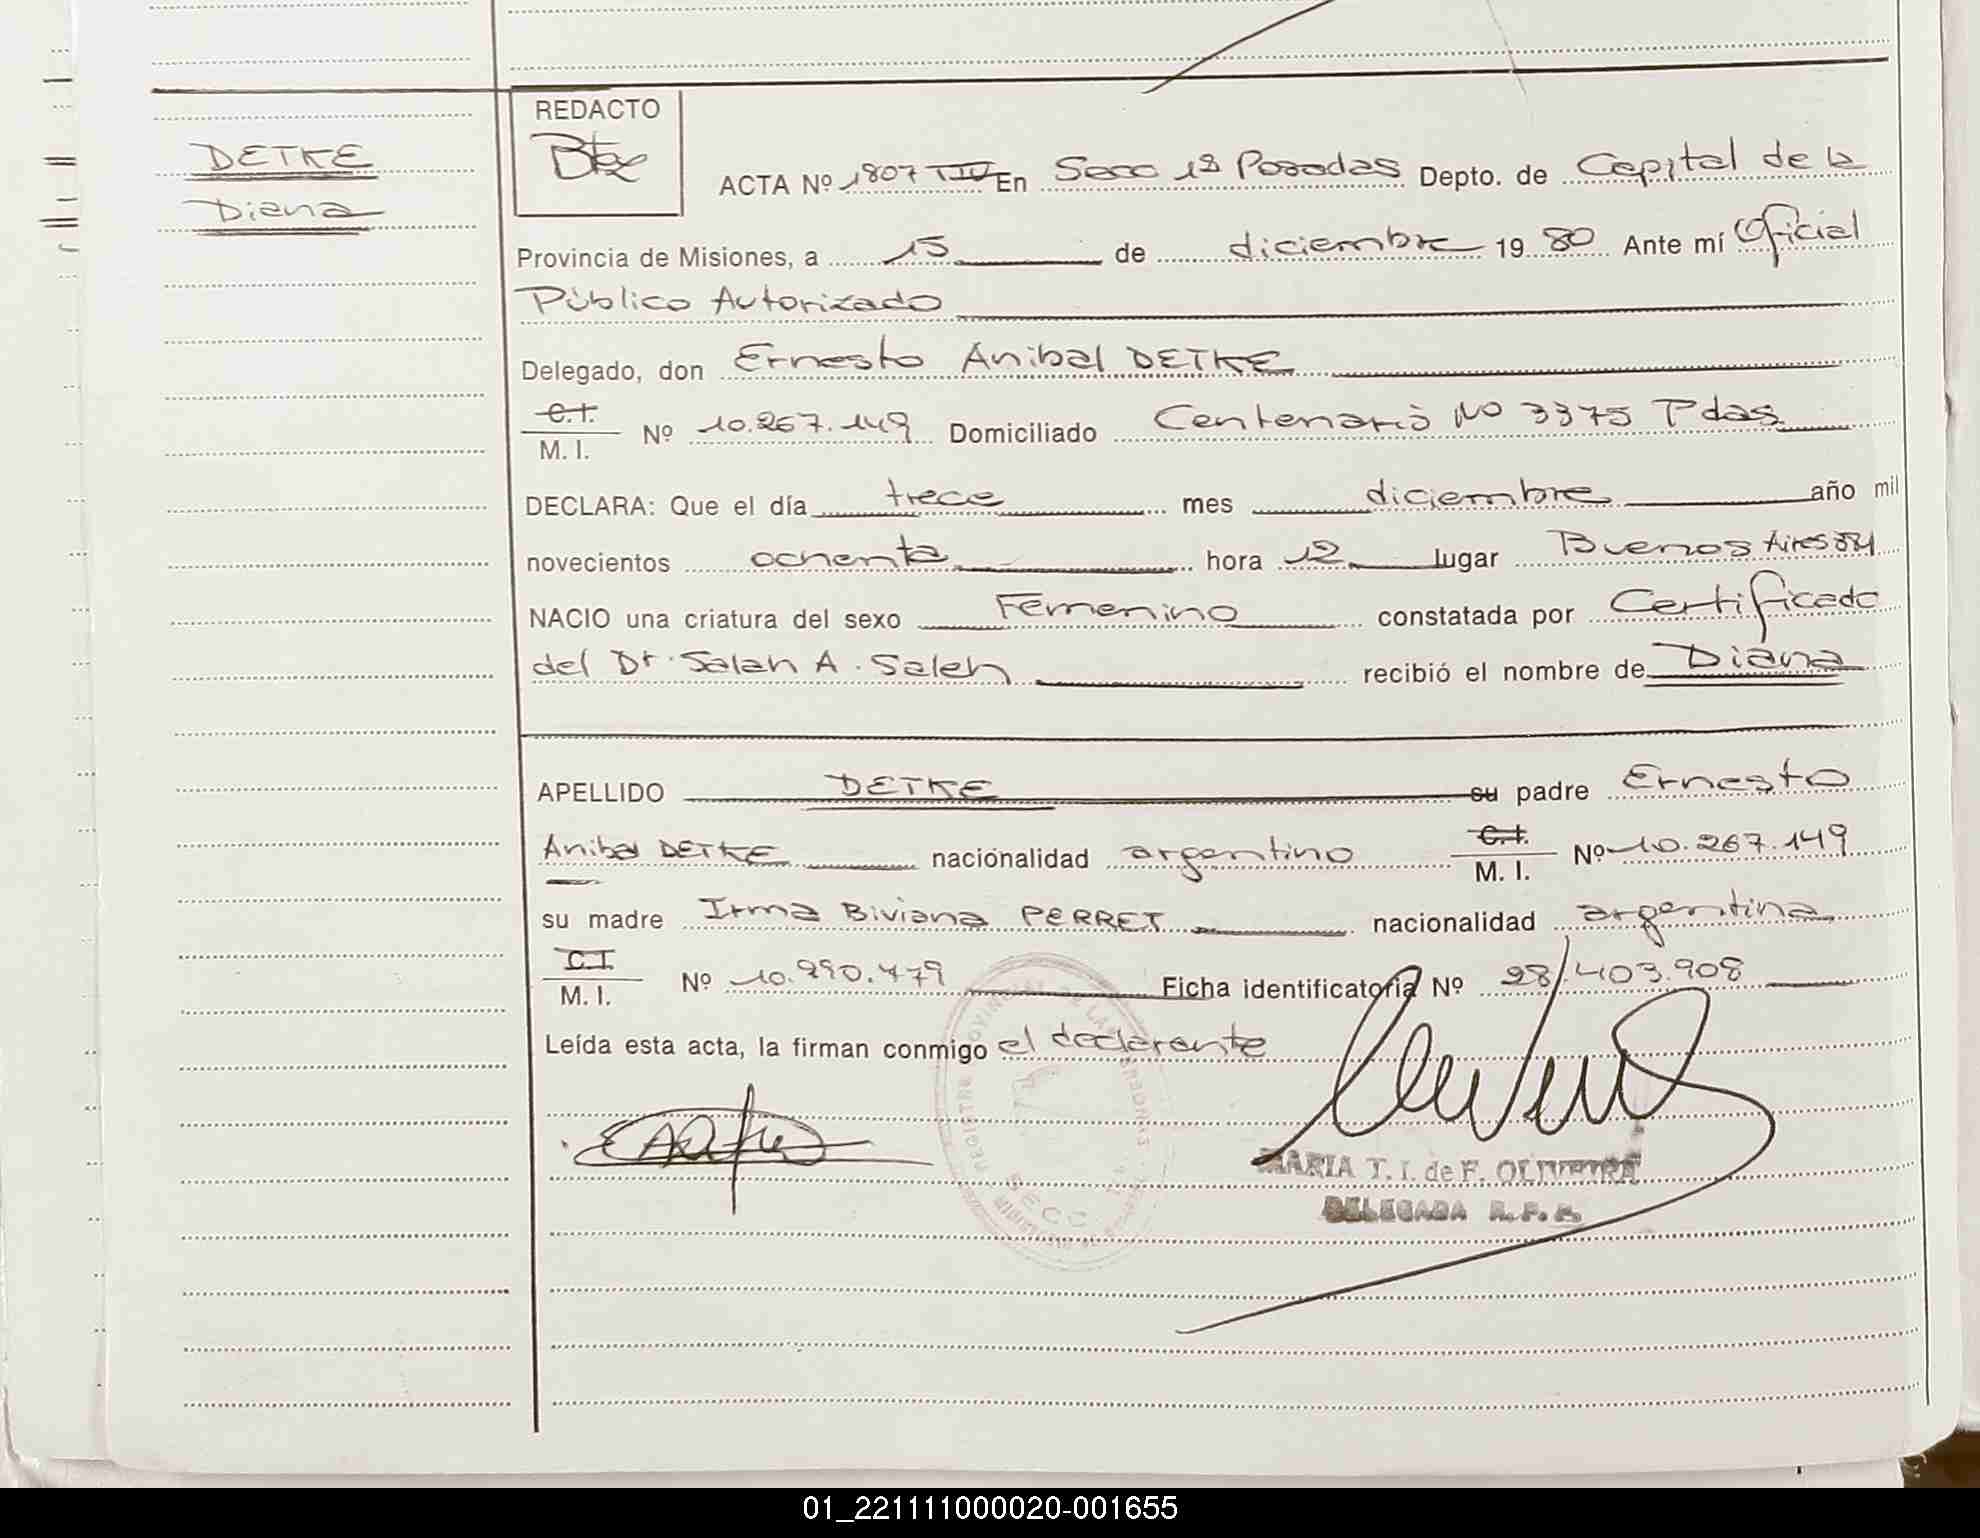 DETKE
Diana
REDACTO
ACTA Nº 1807 TIV En Secc 1ª Posadas Depto. de Capital de la
Provincia de Misiones, a 15 de diciembre 1980 Ante mí Oficial
Público Autorizado
Delegado, don Ernesto Anibal DETKE
C.I.
M. I. Nº 10.267.149 Domiciliado Centenario Nº 3375 Pdas
DECLARA: Que el día trece mes diciembre año mil
novecientos ochenta hora 12 lugar Buenos Aires
NACIO una criatura del sexo Femenino constatada por Certificado
del Dr. Salah A. Saleh recibió el nombre de Diana
APELLIDO DETKE su padre Ernesto
Anibal DETKE nacionalidad argentino C.I. M. I. Nº 10.267.149
su madre Irma Biviana PERRET nacionalidad argentina
C.I.
M. I. Nº 10.990.479 Ficha identificatoria Nº 28/403.908
Leída esta acta, la firman conmigo el declarante
MARIA T. I. de F. OLIVEIRA
DELEGADA R. P. P.
01_221111000020-001655